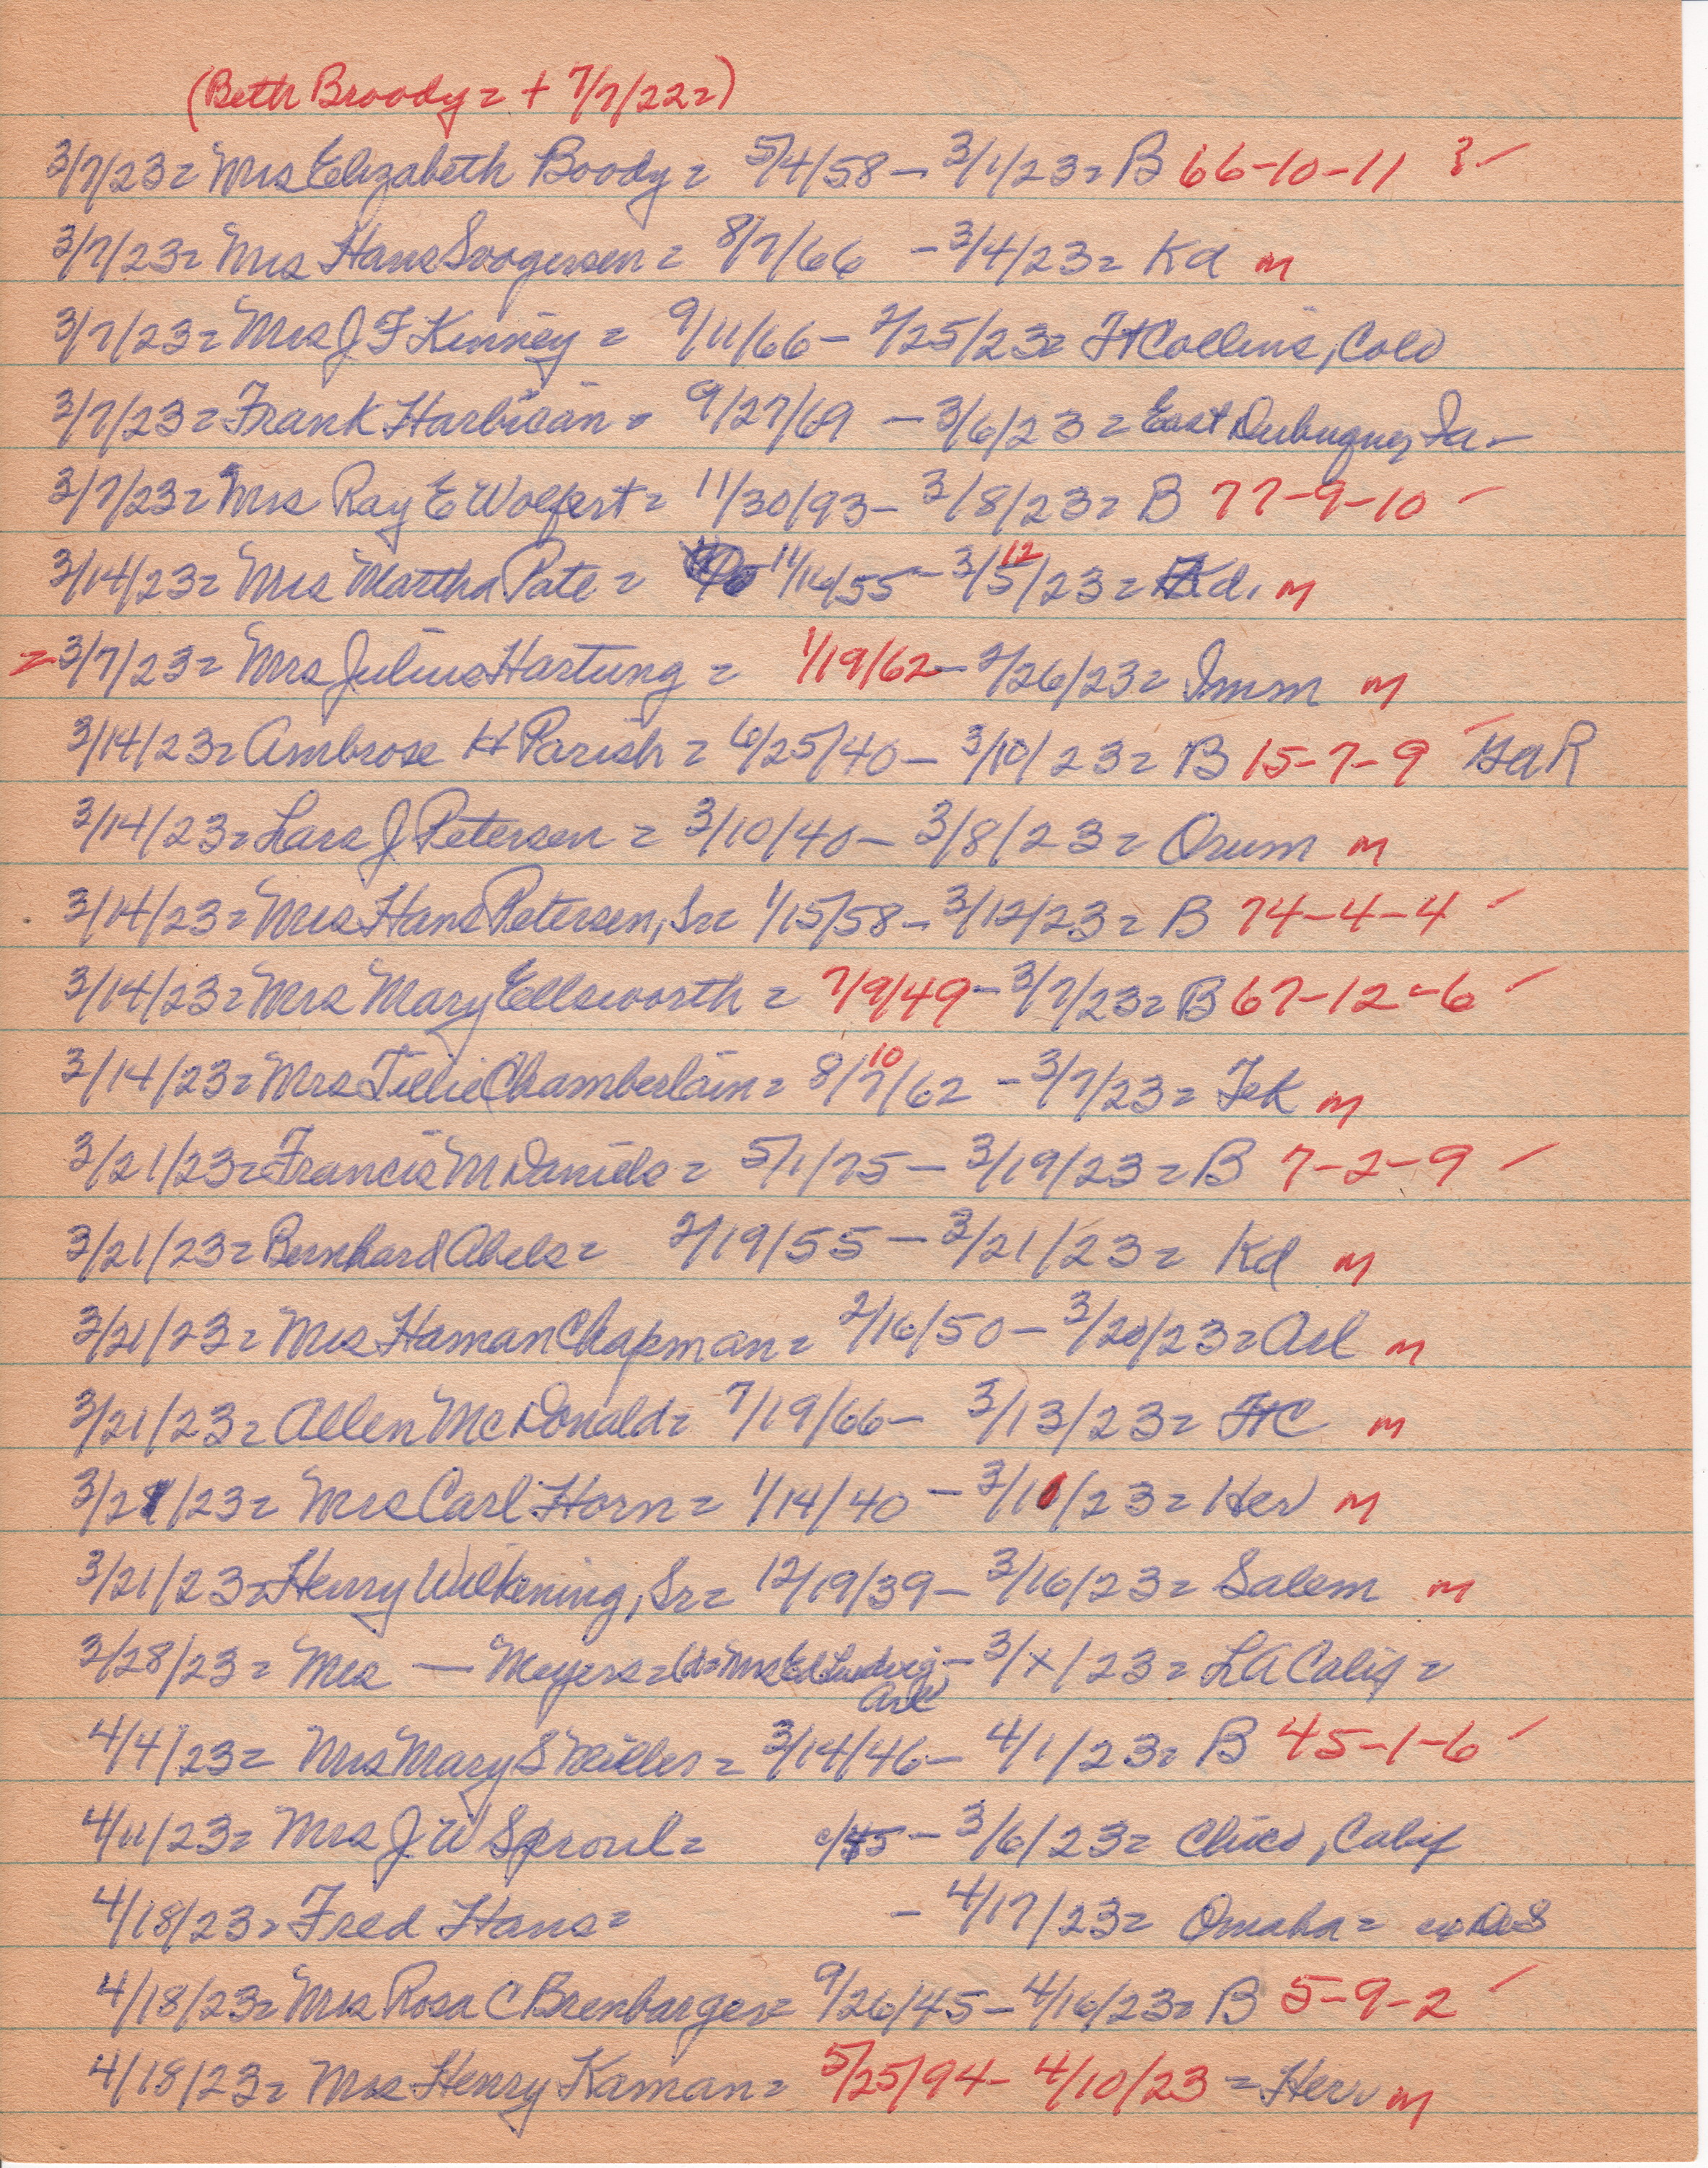 (Beth Broody = + 7/7/22 =)
3/7/23 = Mrs Elizabeth Boody = 5/4/58 - 3/1/23 = B 66-10-11 ? ✓
3/7/23 = Mrs Hans Svogersen = 8/7/66 - 3/4/23 = Kd m
3/7/23 = Mrs J F Kinney = 9/11/66 - 2/25/23 = Ft Collins, Colo
3/7/23 = Frank Harbican = 9/27/69 - 3/6/23 = East Dubuque, Ia -
3/7/23 = Mrs Ray E Wolfert = 11/30/93 - 3/8/23 = B 77-9-10 ✓
3/14/23 = Mrs Martha Pate = 11/16/55 - 3/5/23 = Kd. m
12
= 3/7/23 = Mrs Julius Hartung = 1/19/62 - 2/26/23 = Imm m
3/14/23 = Ambrose H Parish = 6/25/40 - 3/10/23 = B 15-7-9 ✓ GAR
3/14/23 = Lars J Petersen = 3/10/40 - 3/8/23 = Orum m
3/14/23 = Mrs Hans Petersen, Sr = 1/15/58 - 3/12/23 = B 74-4-4 ✓
3/14/23 = Mrs Mary Ellsworth = 7/9/49 - 3/7/23 = B 67-12-6 ✓
3/14/23 = Mrs Tillie Chamberlain = 8/7/62 - 3/7/23 = Tek m
10
3/21/23 = Francis M Daniels = 5/1/75 - 3/19/23 = B 7-2-9 ✓
3/21/23 = Bernhard Abels = 2/19/55 - 3/21/23 = Kd m
3/21/23 = Mrs Haman Chapman = 2/16/50 - 3/20/23 = Arl m
3/21/23 = Allen McDonald = 7/19/66 - 3/13/23 = FtC m
3/21/23 = Mrs Carl Horn = 1/14/40 - 3/10/23 = Her m
3/21/23 = Henry Wilkening, Sr = 12/19/39 - 3/16/23 = Salem m
3/28/23 = Mrs — Meyers = (d = Mrs Ed Ludwig - 3/x/23 = LA Calif =
Arl)
4/4/23 = Mrs Mary S Miller = 3/14/46 - 4/1/23 = B 45-1-6 ✓
4/11/23 = Mrs J W Sproul = c/45 - 3/6/23 = Chico, Calif
4/18/23 = Fred Hans = - 4/17/23 = Omaha =
4/18/23 = Mrs Rosa C Brenbarger = 9/26/45 - 4/16/23 = B 5-9-2 ✓
4/18/23 = Mrs Henry Kaman = 5/25/94 - 4/10/23 = Her m